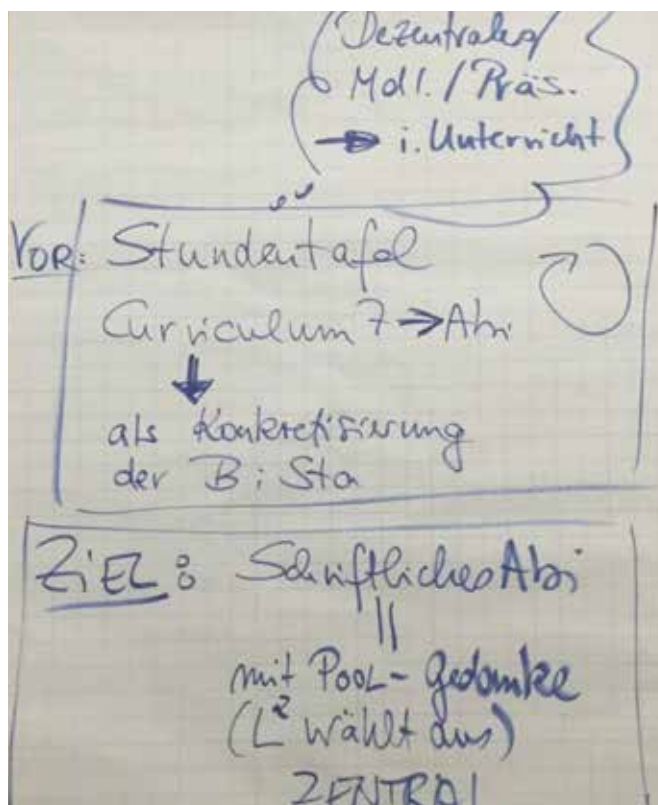 Dezentrales/
Mdl./Präs.
→ i. Unterricht
VOR: Stundentafel
Curriculum 7 → Abi
↓
als Konkretisierung
der BiSta
ZiEL: Schriftliches Abi
||
mit POOL-Gedanke
(L² wählt aus)
ZENTRAL